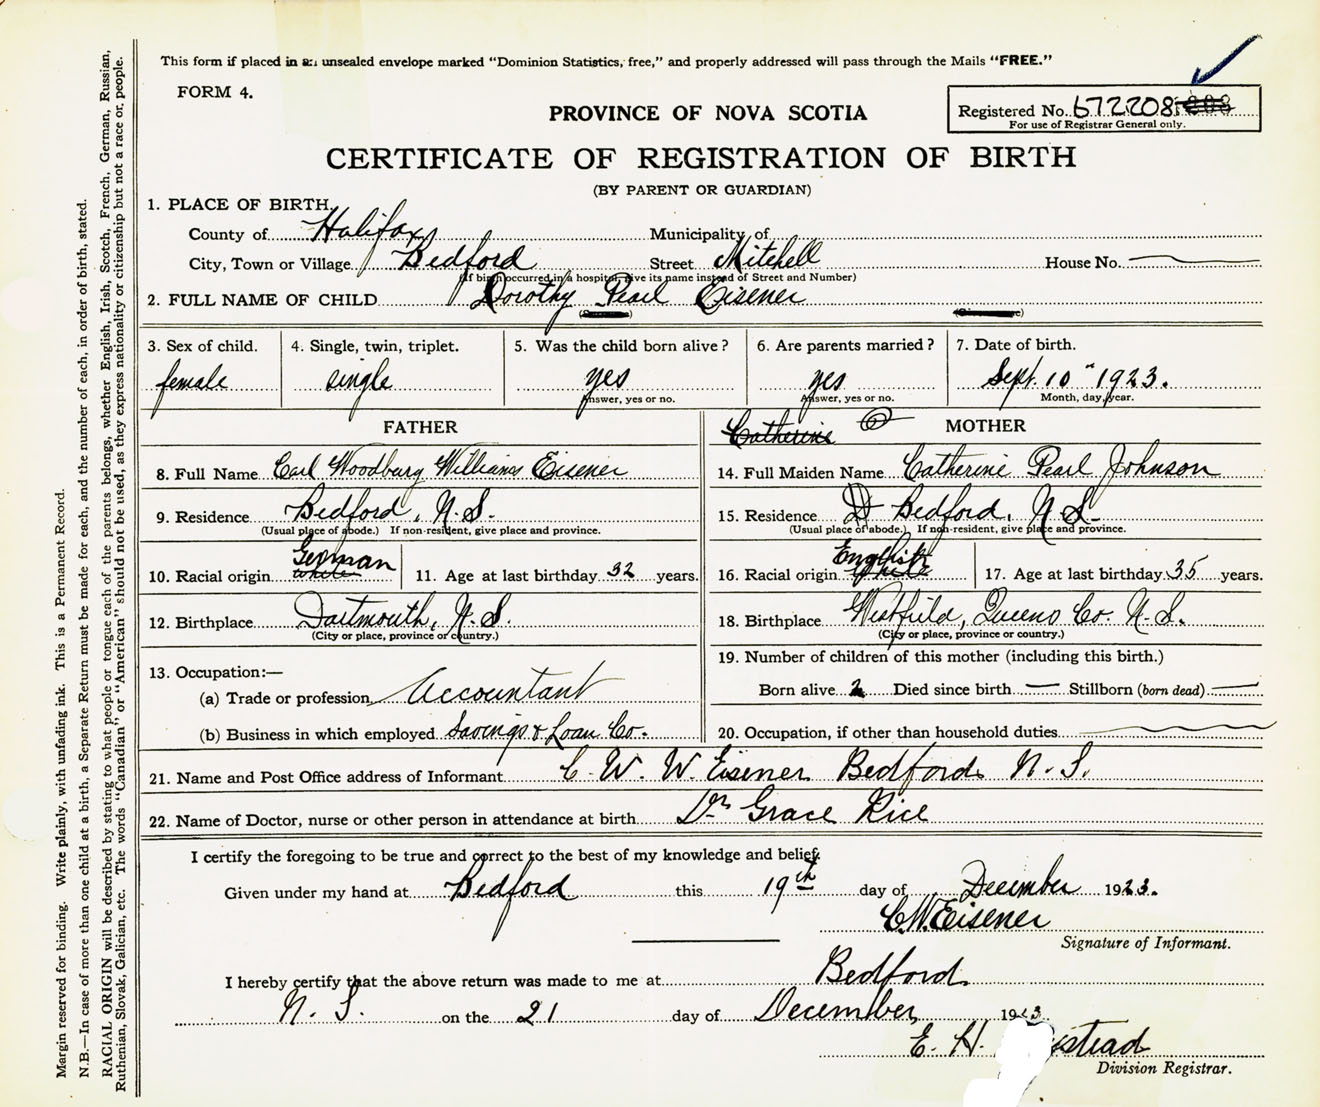 This form if placed in an unsealed envelope marked "Dominion Statistics, free," and properly addressed will pass through the Mails "FREE."
FORM 4.
PROVINCE OF NOVA SCOTIA
Registered No. 672208
For use of Registrar General only.
CERTIFICATE OF REGISTRATION OF BIRTH
(BY PARENT OR GUARDIAN)
1. PLACE OF BIRTH.
County of Halifax Municipality of
City, Town or Village Bedford Street Mitchell House No. —
(If birth occurred in a hospital, give its name instead of Street and Number)
2. FULL NAME OF CHILD Dorothy Pearl Eisener
3. Sex of child. 4. Single, twin, triplet. 5. Was the child born alive? 6. Are parents married? 7. Date of birth.
female single yes yes Sept. 10" 1923.
Answer, yes or no. Answer, yes or no. Month, day, year.
FATHER Catherine MOTHER
8. Full Name Carl Woodbury Williams Eisener 14. Full Maiden Name Catherine Pearl Johnson
9. Residence Bedford, N.S. 15. Residence Bedford, N.S.
(Usual place of abode.) If non-resident, give place and province. (Usual place of abode.) If non-resident, give place and province.
German English
10. Racial origin white 11. Age at last birthday 32 years. 16. Racial origin white 17. Age at last birthday 35 years.
12. Birthplace Dartmouth, N.S. 18. Birthplace Westfield, Queens Co. N.S.
(City or place, province or country.) (City or place, province or country.)
13. Occupation:— 19. Number of children of this mother (including this birth.)
(a) Trade or profession Accountant Born alive 2 Died since birth — Stillborn (born dead) —
(b) Business in which employed Savings & Loan Co. 20. Occupation, if other than household duties
21. Name and Post Office address of Informant C. W. W. Eisener Bedford N.S.
22. Name of Doctor, nurse or other person in attendance at birth Dr Grace Rice
I certify the foregoing to be true and correct to the best of my knowledge and belief.
Given under my hand at Bedford this 19th day of December 1923.
C.W. Eisener
Signature of Informant.
I hereby certify that the above return was made to me at Bedford
N. S. on the 21 day of December 1923
E. H.
Division Registrar.
Margin reserved for binding. Write plainly, with unfading ink. This is a Permanent Record.
N.B.—In case of more than one child at a birth, a Separate Return must be made for each, and the number of each, in order of birth, stated.
RACIAL ORIGIN will be described by stating to what people or tongue each of the parents belongs, whether English, Irish, Scotch, French, German, Russian,
Ruthenian, Slovak, Galician, etc. The words "Canadian" or "American" should not be used, as they express nationality or citizenship but not a race or people.